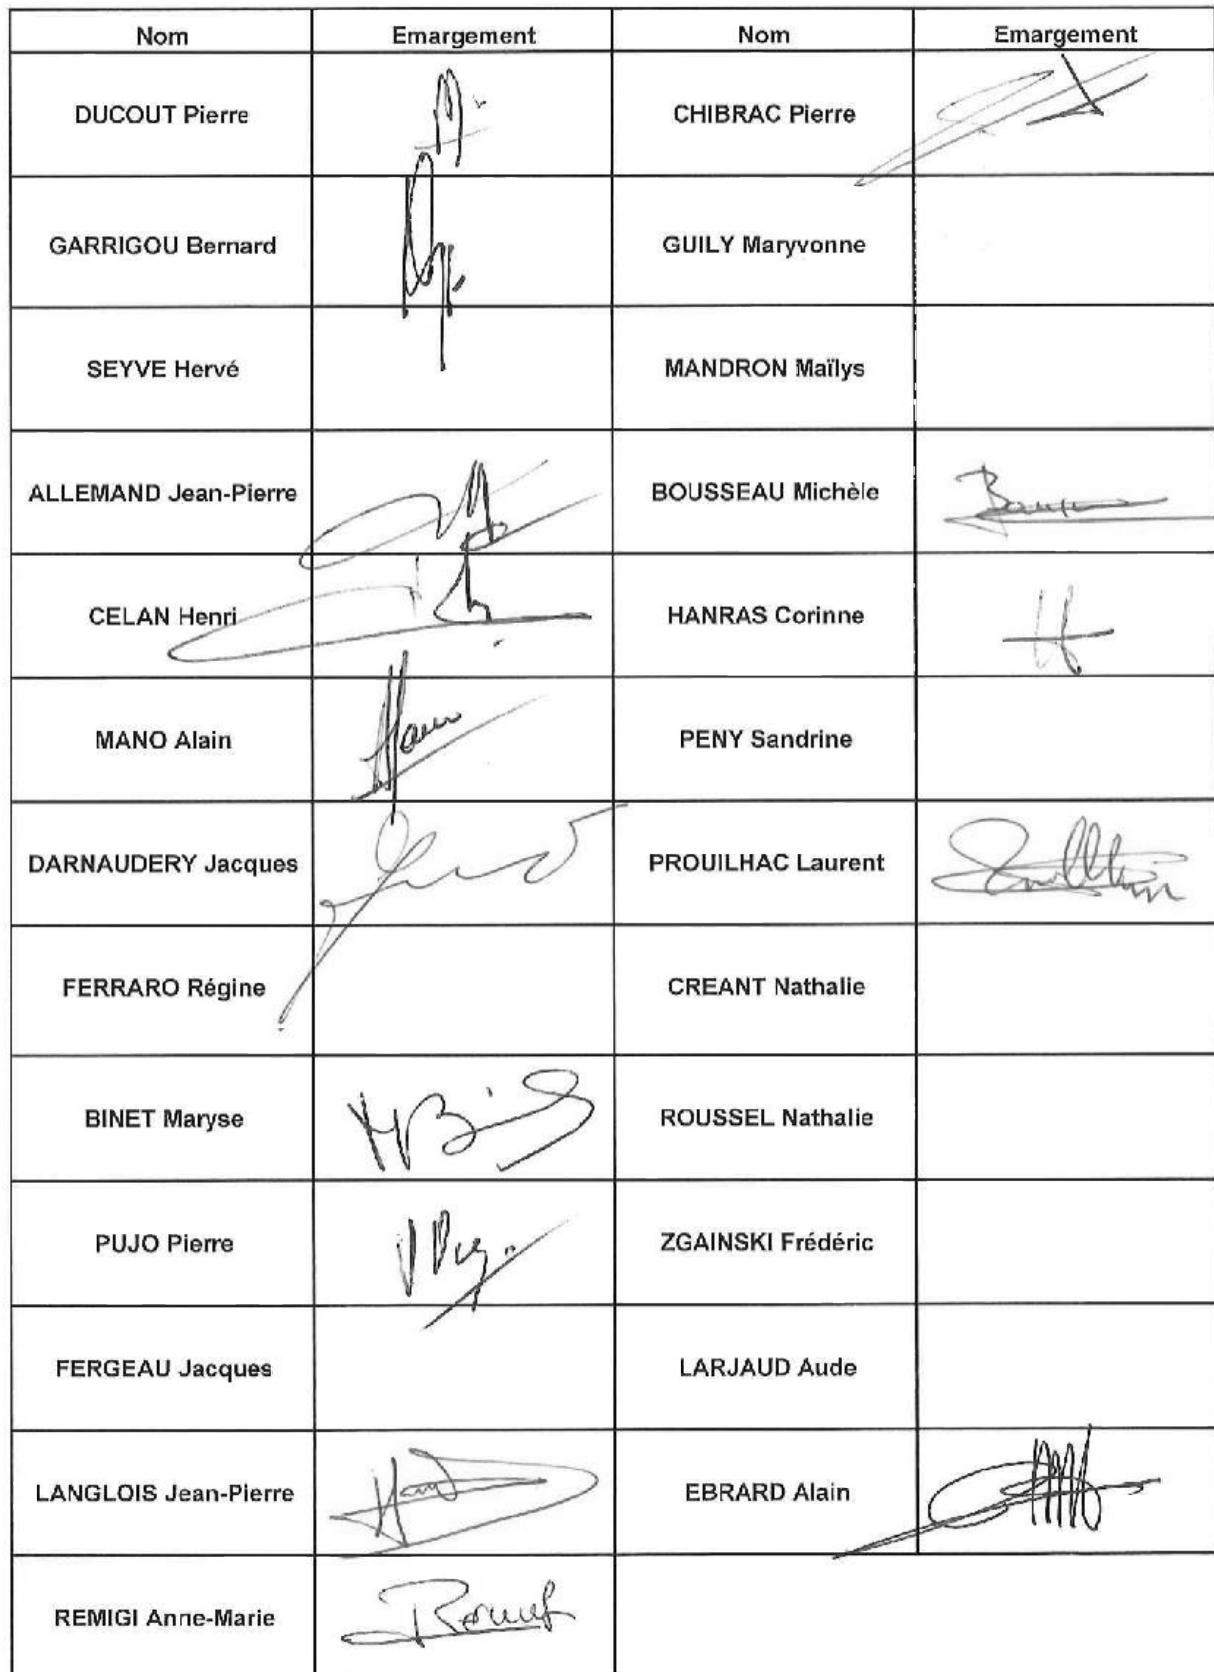 Nom Emargement Nom Emargement
DUCOUT Pierre CHIBRAC Pierre
GARRIGOU Bernard GUILY Maryvonne
SEYVE Hervé MANDRON Maïlys
ALLEMAND Jean-Pierre BOUSSEAU Michèle
CELAN Henri HANRAS Corinne
MANO Alain PENY Sandrine
DARNAUDERY Jacques PROUILHAC Laurent
FERRARO Régine CREANT Nathalie
BINET Maryse ROUSSEL Nathalie
PUJO Pierre ZGAINSKI Frédéric
FERGEAU Jacques LARJAUD Aude
LANGLOIS Jean-Pierre EBRARD Alain
REMIGI Anne-Marie